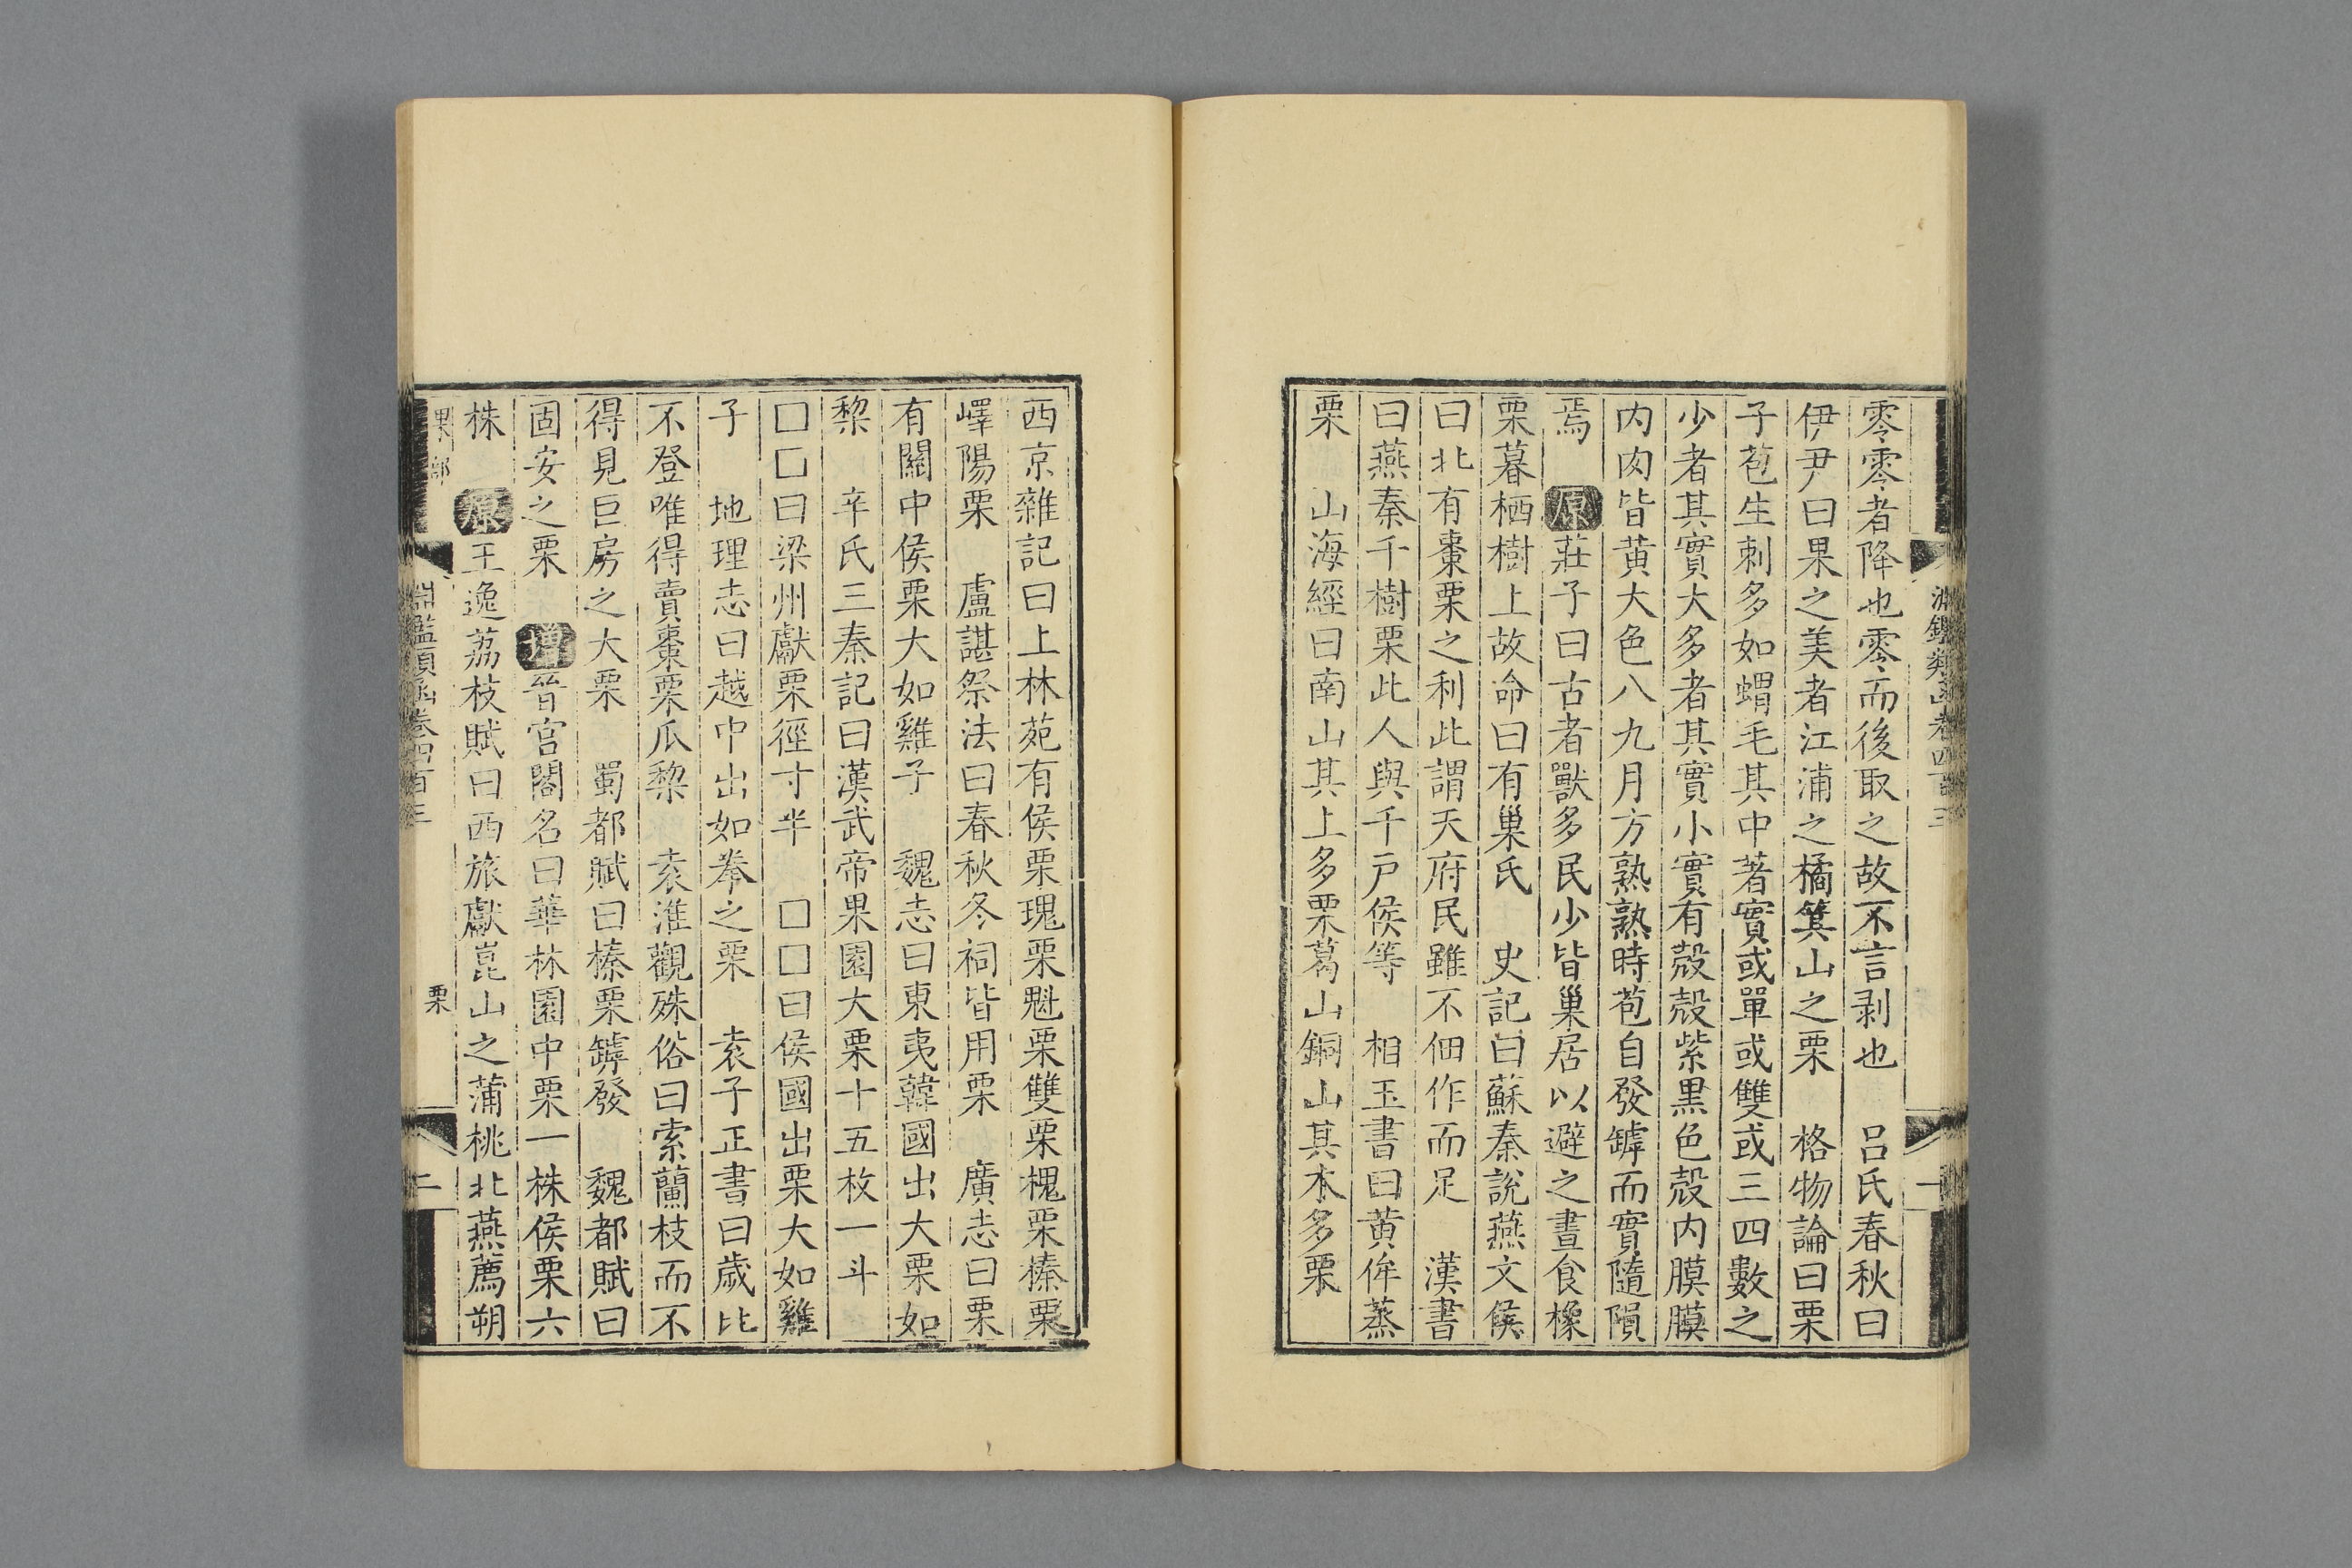 零零者降也零而後取之故不言剥也　呂氏春秋曰
伊尹曰果之美者江浦之橘箕山之栗　格物論曰栗
子苞生刺多如蝟毛其中著實或單或雙或三四數之
少者其實大多者其實小實有殼殼紫黒色殼内膜膜
内肉皆黄大色八九月方熟熟時苞自發罅而實隨隕
焉　原莊子曰古者獸多民少皆巢居以避之晝食橡
栗暮栖樹上故命曰有巢氏　史記曰蘇秦說燕文侯
曰北有棗栗之利此謂天府民雖不佃作而足　漢書
曰燕秦千樹栗此人與千戸侯等　相玉書曰黄侔蒸
栗　山海經曰南山其上多栗葛山銅山其木多栗
淵鑑類函卷四百三
一
西京雜記曰上林苑有侯栗瑰栗魁栗雙栗槐栗榛栗
嶧陽栗　盧諶祭法曰春秋冬祠皆用栗　廣志曰栗
有關中侯栗大如雞子　魏志曰東夷韓國出大栗如
棃　辛氏三秦記曰漢武帝果園大栗十五枚一斗
□□曰梁州獻栗徑寸半　□□曰侯國出栗大如雞
子　地理志曰越中出如拳之栗　袁子正書曰歲比
不登唯得賣棗栗瓜棃　袁淮觀殊俗曰索蘭枝而不
得見巨房之大栗　蜀都賦曰榛栗罅發　魏都賦曰
固安之栗　增晉宫閣名曰華林園中栗一株侯栗六
株　原王逸荔枝賦曰西旅獻崑山之蒲桃北燕薦朔
果部
淵鑑類函卷四百三
栗
二